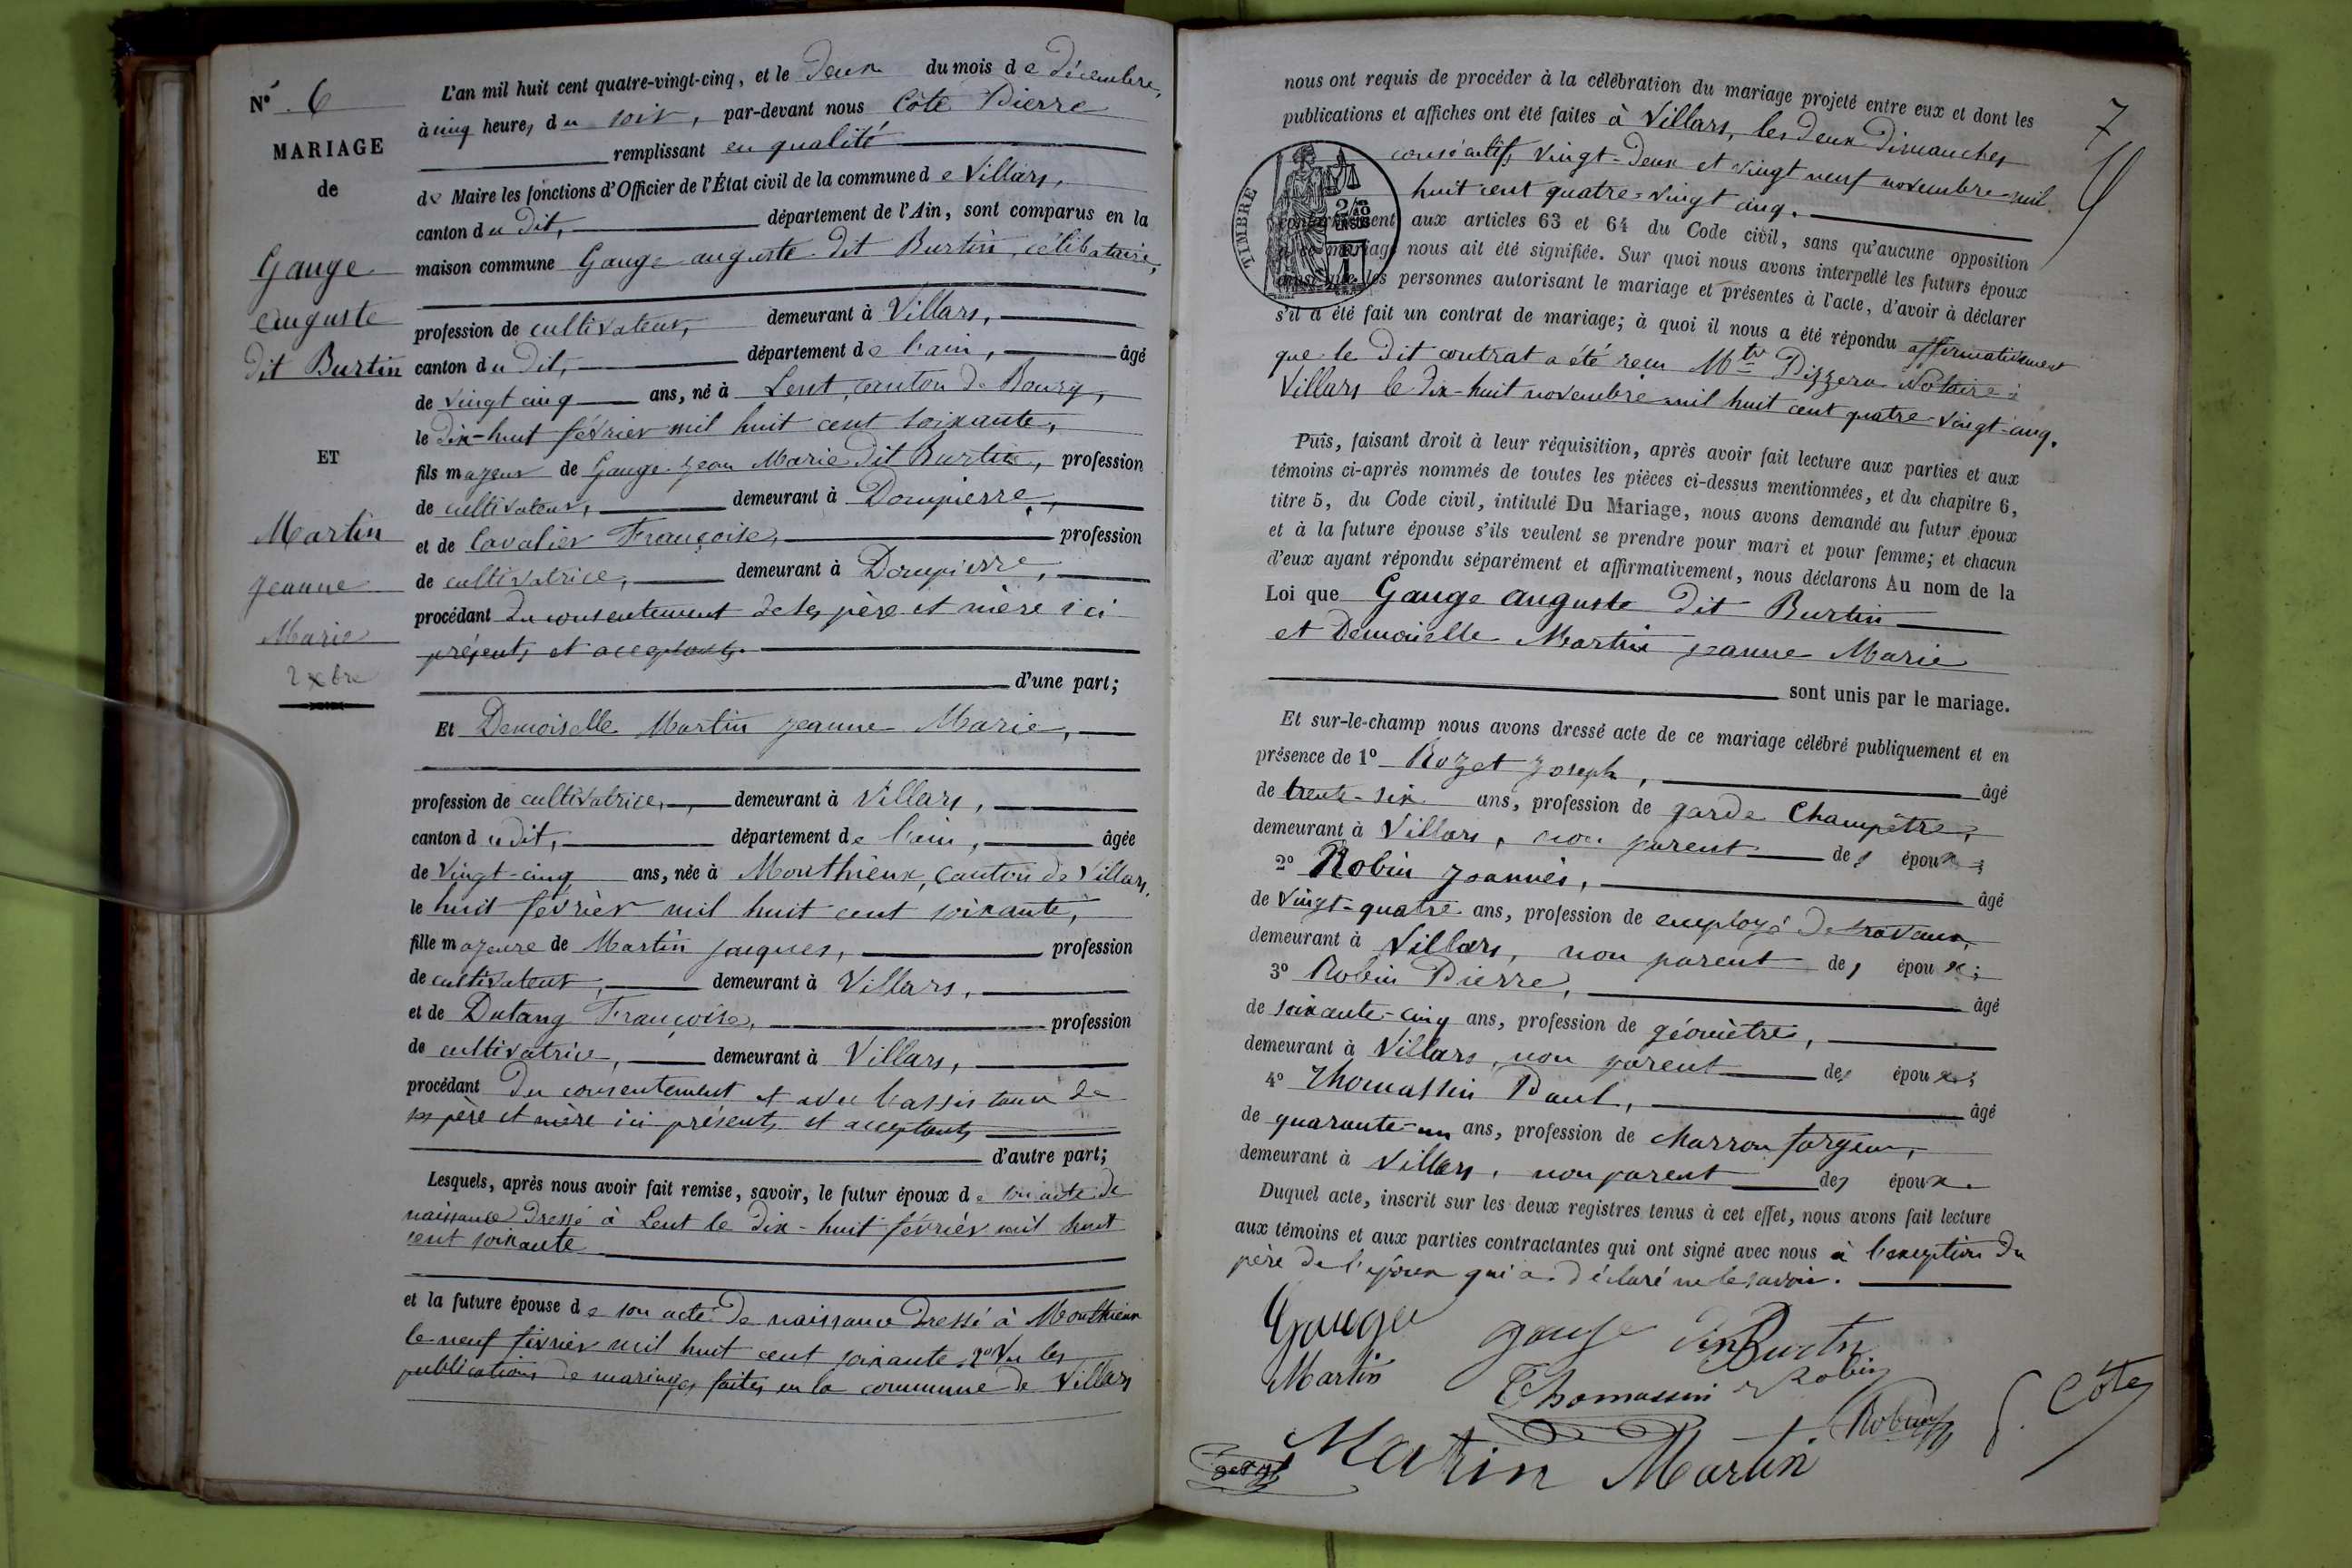 N° 6
MARIAGE
de
Gauge
auguste
dit Burtin
ET
Martin
jeanne
Marie
2 xbre
L'an mil huit cent quatre-vingt-cinq, et le deux du mois de décembre,
à cinq heures du soir, par-devant nous Côte Pierre
remplissant en qualité
de Maire les fonctions d'Officier de l'État civil de la commune de Villars,
canton du dit, département de l'Ain, sont comparus en la
maison commune Gauge auguste dit Burtin, célibataire,
profession de cultivateur, demeurant à Villars,
canton du dit, département de l'ain, âgé
de vingt cinq ans, né à Lent, canton de Bourg,
le dix-huit février mil huit cent soixante,
fils majeur de Gauge jean Marie dit Burtin, profession
de cultivateur, demeurant à Dompierre,
et de Cavalier Françoise, profession
de cultivatrice, demeurant à Dompierre,
procédant du consentement de ses père et mère ici
présents et acceptants.
d'une part;
Et Demoiselle Martin jeanne Marie,
profession de cultivatrice, demeurant à Villars,
canton du dit, département de l'ain, âgée
de vingt-cinq ans, née à Monthieux, canton de Villars,
le huit février mil huit cent soixante,
fille majeure de Martin jacques, profession
de cultivateur, demeurant à Villars,
et de Dutang Françoise, profession
de cultivatrice, demeurant à Villars,
procédant du consentement et avec l'assistance de
ses père et mère ici présents et acceptants
d'autre part;
Lesquels, après nous avoir fait remise, savoir, le futur époux de son acte de
naissance dressé à Lent le dix-huit février mil huit
cent soixante
et la future épouse de son acte de naissance dressé à Monthieux
le neuf février mil huit cent soixante. 2° Vu les
publications de mariages faites en la commune de Villars
7
nous ont requis de procéder à la célébration du mariage projeté entre eux et dont les
publications et affiches ont été faites à Villars, les deux dimanches
consécutifs vingt-deux et vingt neuf novembre mil
huit cent quatre-vingt cinq.
TIMBRE
2/10
EN SUS
conformément aux articles 63 et 64 du Code civil, sans qu'aucune opposition
à ce mariage nous ait été signifiée. Sur quoi nous avons interpellé les futurs époux
ainsi que les personnes autorisant le mariage et présentes à l'acte, d'avoir à déclarer
s'il a été fait un contrat de mariage; à quoi il nous a été répondu affirmativement
que le dit contrat a été recu Mtre Pizzera Notaire à
Villars le dix-huit novembre mil huit cent quatre-vingt-cinq.
Puis, faisant droit à leur réquisition, après avoir fait lecture aux parties et aux
témoins ci-après nommés de toutes les pièces ci-dessus mentionnées, et du chapitre 6,
titre 5, du Code civil, intitulé Du Mariage, nous avons demandé au futur époux
et à la future épouse s'ils veulent se prendre pour mari et pour femme; et chacun
d'eux ayant répondu séparément et affirmativement, nous déclarons Au nom de la
Loi que Gauge auguste dit Burtin
et Demoiselle Martin jeanne Marie
sont unis par le mariage.
Et sur-le-champ nous avons dressé acte de ce mariage célébré publiquement et en
présence de 1° Rozet joseph, âgé
de trente-six ans, profession de garde Champêtre,
demeurant à Villars, non parent des époux;
2° Robin joannès, âgé
de vingt-quatre ans, profession de employé de travaux,
demeurant à Villars, non parent des époux;
3° Robin Pierre, âgé
de soixante-cinq ans, profession de géomètre,
demeurant à Villars, non parent des époux;
4° Thomassin Paul, âgé
de quarante-un ans, profession de charron forgeur,
demeurant à Villars, non parent des époux.
Duquel acte, inscrit sur les deux registres tenus à cet effet, nous avons fait lecture
aux témoins et aux parties contractantes qui ont signé avec nous à l'exception du
père de l'époux qui a déclaré ne le savoir.
Gauge gauge dit Burtin
Martin Thomassin Robin
Martin Martin Robin P. Côte